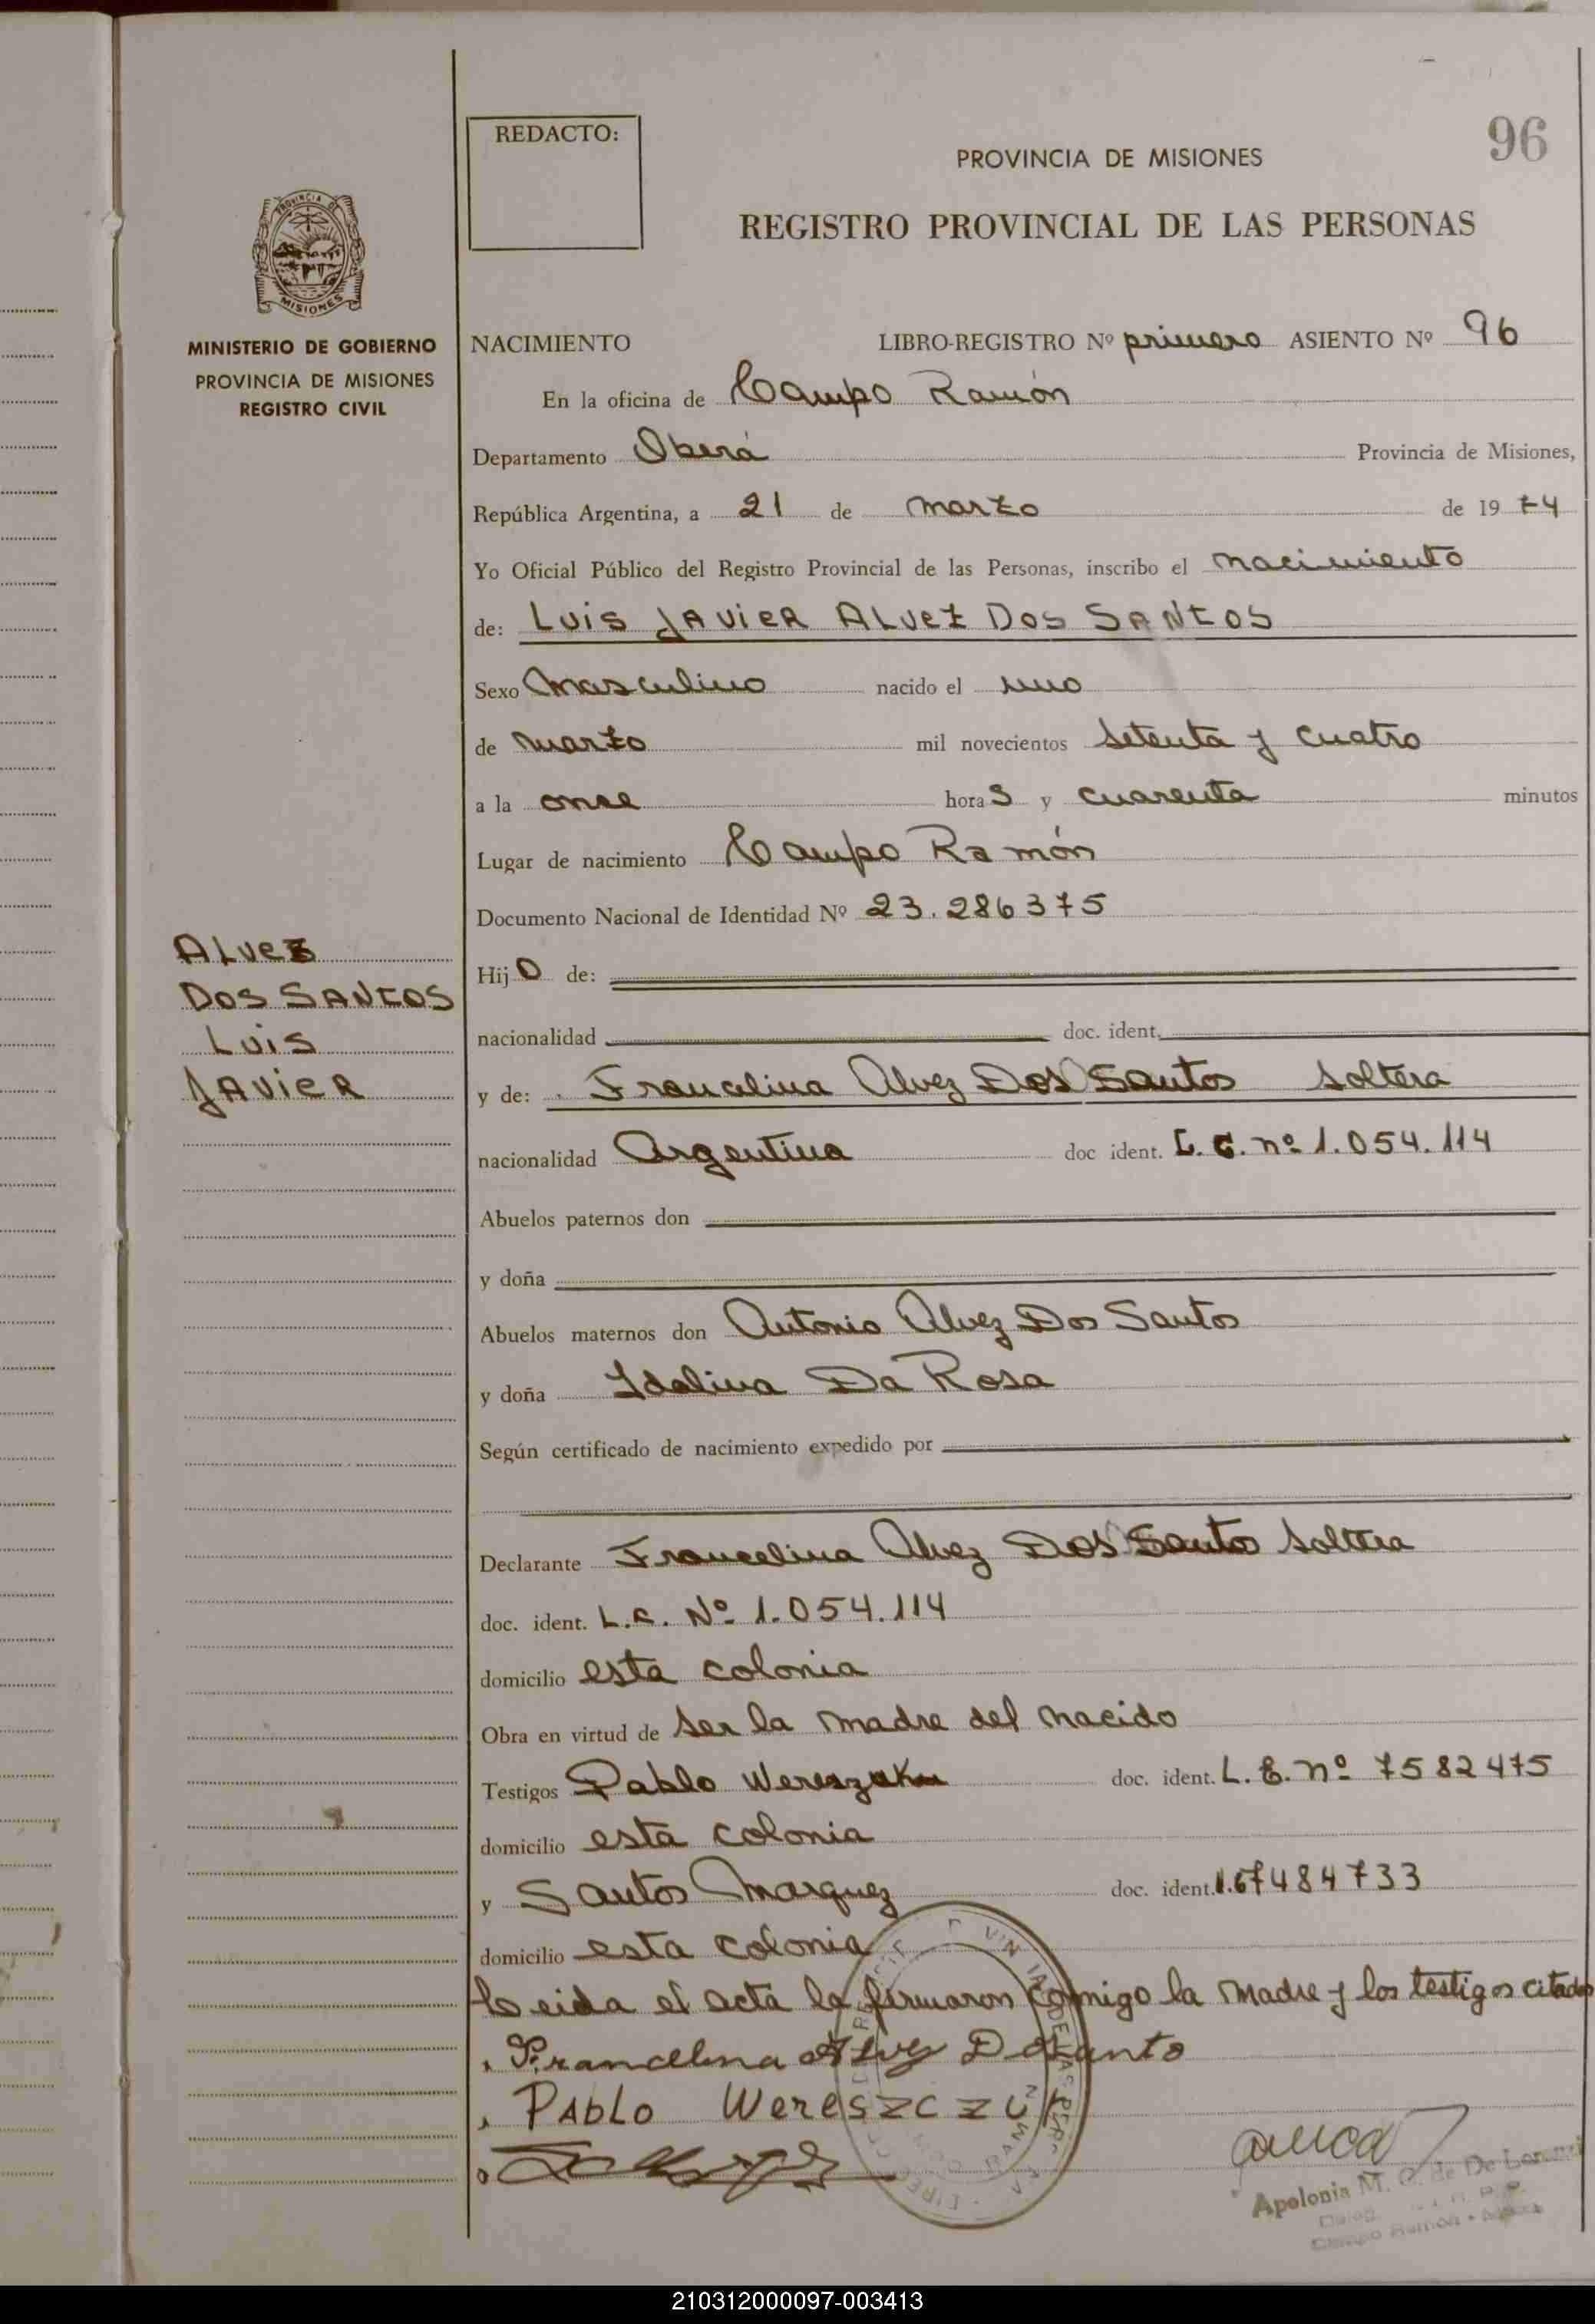 96
REDACTO:
PROVINCIA DE MISIONES
REGISTRO PROVINCIAL DE LAS PERSONAS
PROVINCIA DE
MISIONES
MINISTERIO DE GOBIERNO
PROVINCIA DE MISIONES
REGISTRO CIVIL
NACIMIENTO LIBRO-REGISTRO Nº primero ASIENTO Nº 96
En la oficina de Campo Ramón
Departamento Oberá Provincia de Misiones,
República Argentina, a 21 de marzo de 1974
Yo Oficial Público del Registro Provincial de las Personas, inscribo el nacimiento
de: Luis JAVIER ALVEZ DOS SANTOS
Sexo masculino nacido el uno
de marzo mil novecientos setenta y cuatro
a la once horas y cuarenta minutos
Lugar de nacimiento Campo Ramón
Documento Nacional de Identidad Nº 23.286375
ALVEZ
DOS SANTOS
LUIS
JAVIER
Hijo de:
nacionalidad doc. ident.
y de: Francelina Alvez Dos Santos soltera
nacionalidad Argentina doc ident. L. C. nº 1.054.114
Abuelos paternos don
y doña
Abuelos maternos don Antonio Alvez Dos Santos
y doña Idalina Da Rosa
Según certificado de nacimiento expedido por
Declarante Francelina Alvez Dos Santos soltera
doc. ident. L.C. Nº 1.054.114
domicilio esta colonia
Obra en virtud de ser la madre del nacido
Testigos Pablo doc. ident. L. E. nº 7582475
domicilio esta colonia
y Santos Marquez doc. ident. 484733
domicilio esta colonia
Leida el acta la firmaron comigo la madre y los testigos citados
Francelina Alvez Dosanto
PAbLo WereSzczuk
Apolonia M. C. de De Lorenzi
Campo Ramón
210312000097-003413